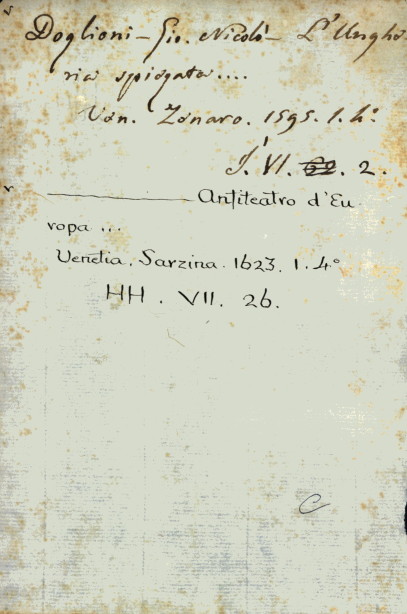 Doglioni - Gio. Nicolò - L'Ungho-
ria spiegata....
Ven. Zenaro. 1595. 1. 4°.
J. VI. 2.
——— Anfiteatro d'Eu
ropa ...
Venetia. Sarzina. 1623. 1. 4°
HH. VII. 26.
C